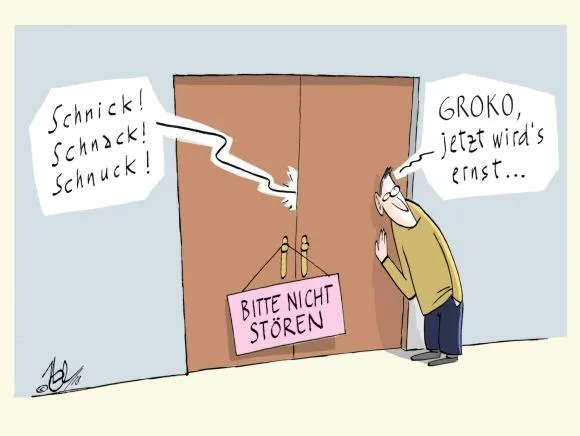 Schnick!
Schnack!
Schnuck!
GROKO,
jetzt wird's
ernst...
BITTE NICHT
STÖREN